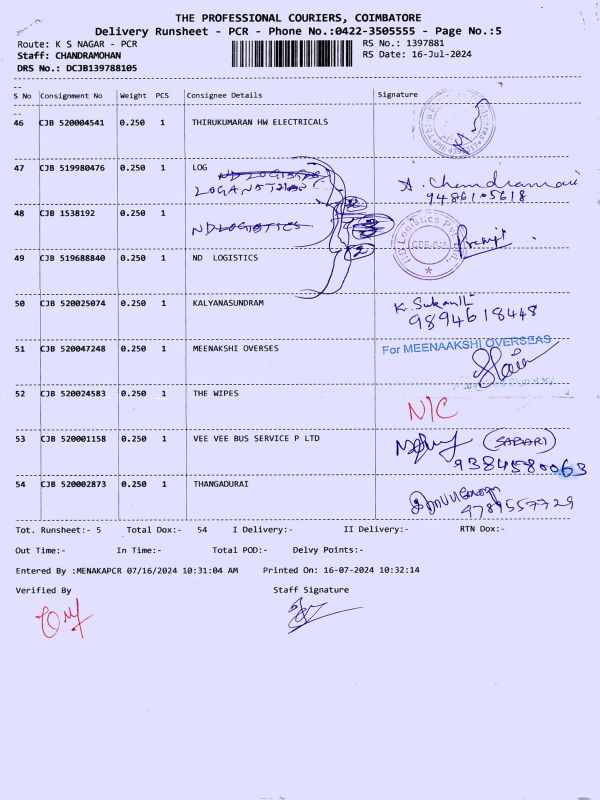 THE PROFESSIONAL COURIERS, COIMBATORE
Delivery Runsheet - PCR - Phone No.:0422-3505555 - Page No.:5
Route: K S NAGAR - PCR
RS No.: 1397881
Staff: CHANDRAMOHAN
RS Date: 16-Jul-2024
DRS No.: DCJB139788105
S No Consignment No Weight PCS Consignee Details Signature
46 CJB 520004541 0.250 1 THIRUKUMARAN HW ELECTRICALS
47 CJB 519980476 0.250 1 LOG ND LOGISTICS
LOGANATHAN
A. Chandramani
9486105618
48 CJB 1538192 0.250 1
ND LOGISTICS
ND Logistics Pvt Ltd
49 CJB 519688840 0.250 1 ND LOGISTICS
2
50 CJB 520025074 0.250 1 KALYANASUNDRAM
K. Sukanth
9894618448
51 CJB 520047248 0.250 1 MEENAKSHI OVERSES
For MEENAAKSHI OVERSEAS
52 CJB 520024583 0.250 1 THE WIPES
N/C
53 CJB 520001158 0.250 1 VEE VEE BUS SERVICE P LTD
(SABARI)
9384580063
54 CJB 520002873 0.250 1 THANGADURAI
9789557729
Tot. Runsheet:- 5 Total Dox:- 54 I Delivery:- II Delivery:- RTN Dox:-
Out Time:- In Time:- Total POD:- Delvy Points:-
Entered By :MENAKAPCR 07/16/2024 10:31:04 AM Printed On: 16-07-2024 10:32:14
Verified By Staff Signature